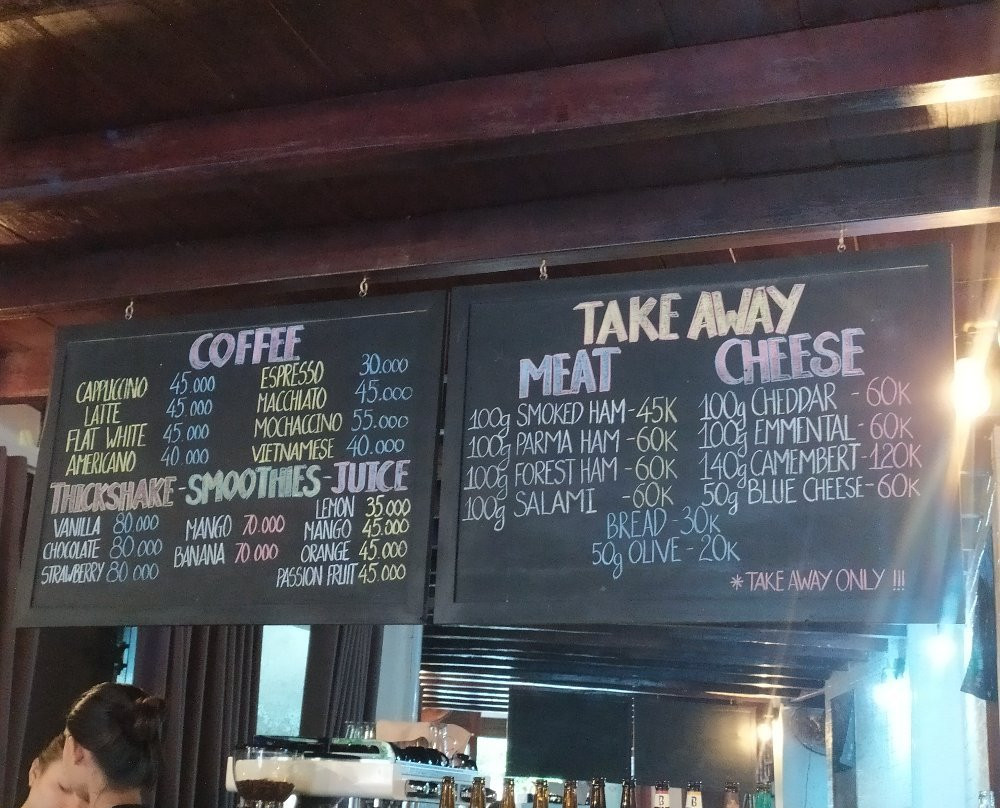 COFFEE
CAPPUCCINO 45.000 ESPRESSO 30.000
LATTE 45.000 MACCHIATO 45.000
FLAT WHITE 45.000 MOCHACCINO 55.000
AMERICANO 40.000 VIETNAMESE 40.000
THICKSHAKE-SMOOTHIES-JUICE
VANILLA 80.000 MANGO 70.000 LEMON 35.000
CHOCOLATE 80.000 BANANA 70.000 MANGO 45.000
STRAWBERRY 80.000 ORANGE 45.000
PASSION FRUIT 45.000
TAKE AWAY
MEAT CHEESE
100g SMOKED HAM-45K 100g CHEDDAR - 60K
100g PARMA HAM -60K 100g EMMENTAL-60K
100g FOREST HAM -60K 140g CAMEMBERT-120K
100g SALAMI -60K 50g BLUE CHEESE-60K
BREAD-30K
50g OLIVE-20K
*TAKE AWAY ONLY !!!